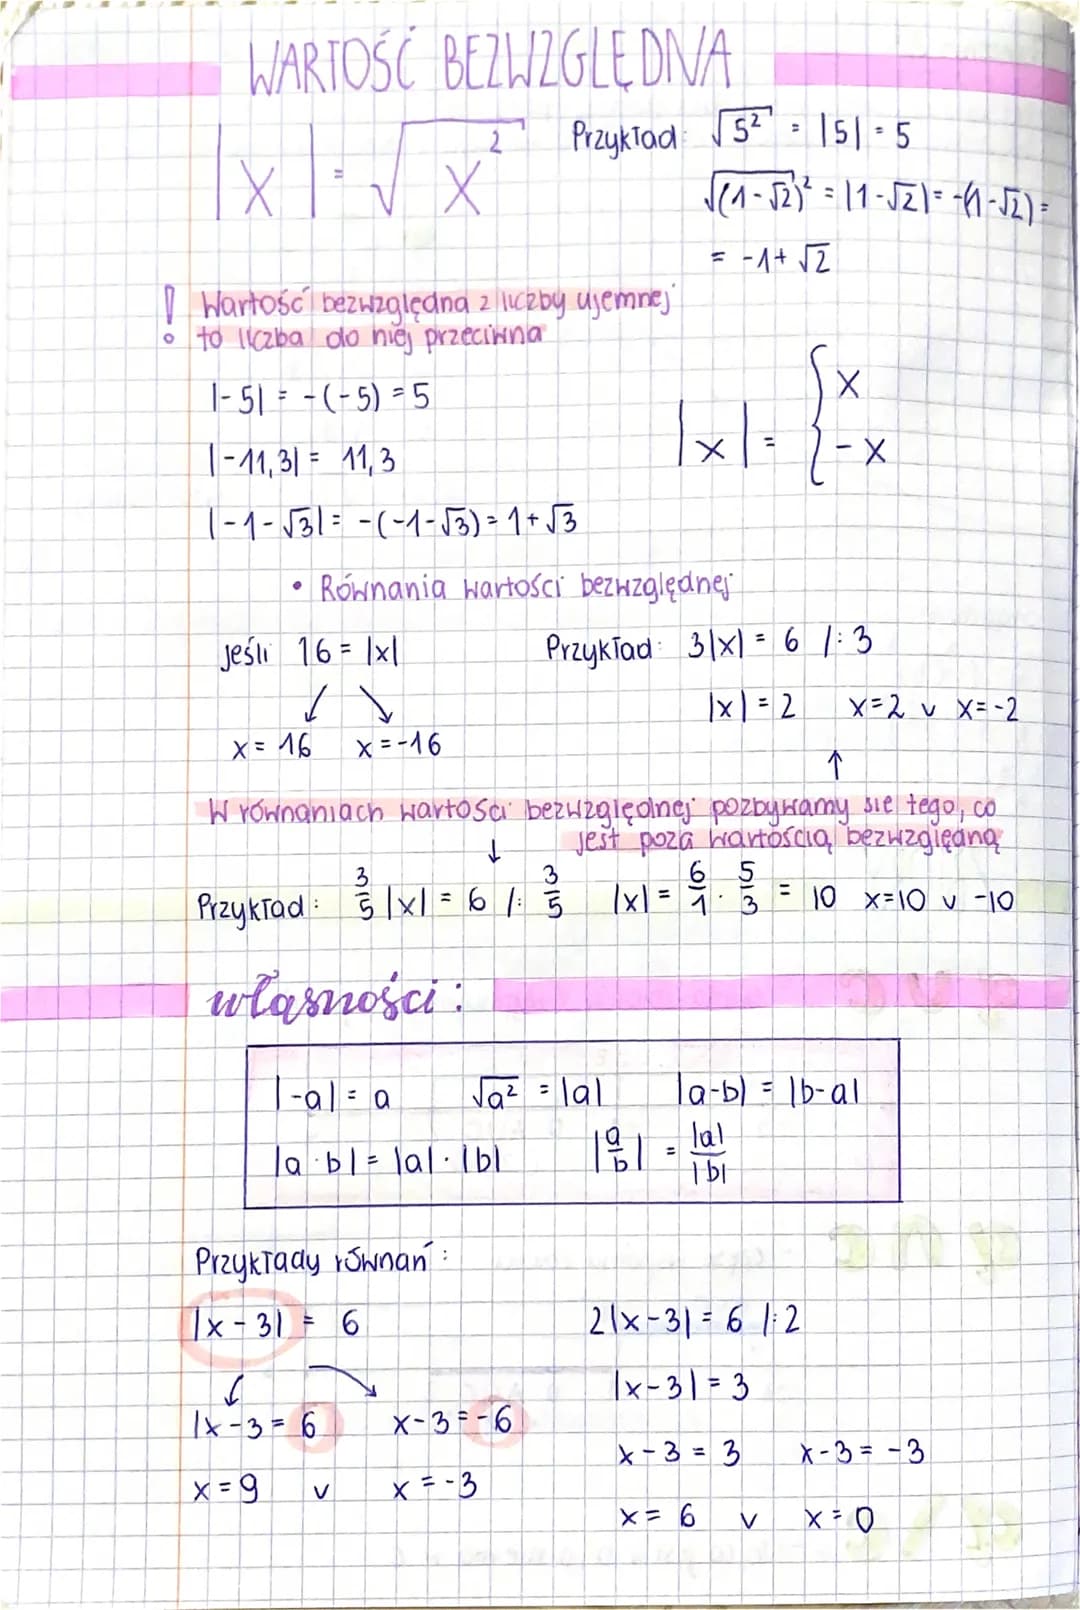 WARTOŚĆ BEZWZGLĘDNA
|x| = √x²
Przykład: √5² = |5| = 5
√(1-√2)² = |1-√2| = -(1-√2) =
= -1+√2
! Wartość bezwzględna z liczby ujemnej
to liczba do niej przeciwna
|-5| = -(-5) = 5
|-11,3| = 11,3
|x| = { x
-x
|-1-√3| = -(-1-√3) = 1+√3
• Równania wartości bezwzględnej
jeśli 16 = |x|
↙ ↘
x = 16 x = -16
Przykład: 3|x| = 6 /:3
|x| = 2 x=2 v x=-2
↑
W równaniach wartości bezwzględnej pozbywamy sie tego, co
jest poza wartością bezwzględną
↓
Przykład: 3/5 |x| = 6 /: 3/5 |x| = 6/1 · 5/3 = 10 x=10 v -10
własności:
|-a| = a √a² = |a| |a-b| = |b-a|
|a·b| = |a|·|b| |a/b| = |a|/|b|
Przykłady równań:
|x-3| = 6
↙ ↘
|x-3 = 6 x-3 = -6
x = 9 v x = -3
2|x-3| = 6 /:2
|x-3| = 3
x-3 = 3 x-3 = -3
x = 6 v x = 0